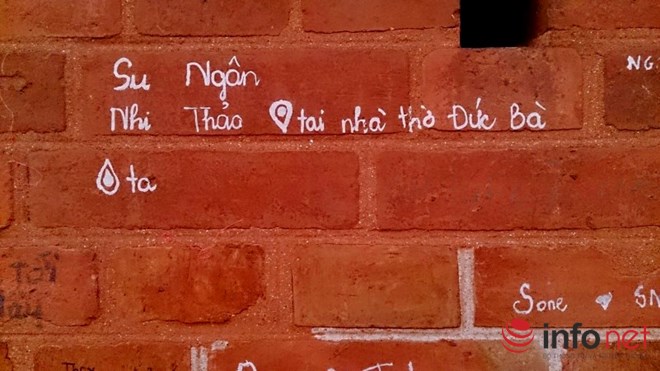 Su Ngân
NG.
Nhi Thảo tai nhà thờ Đức Bà
ta
Sone SN
infonet